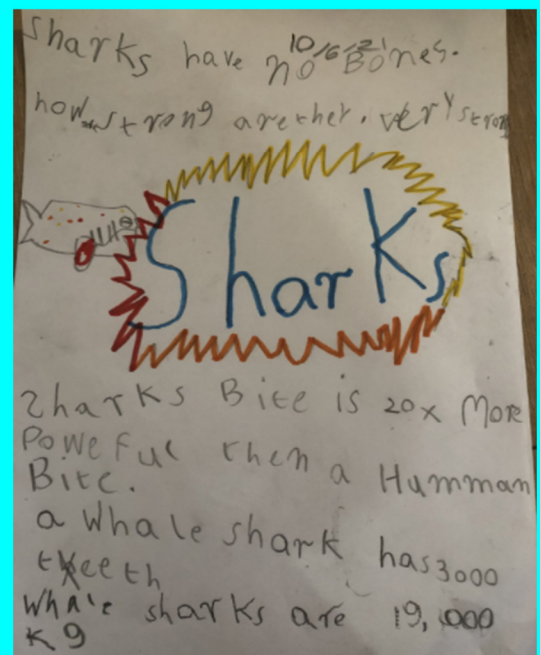 Sharks have no Bones.
10/6/21
how strong are ther. very strong
Sharks
Sharks Bite is 20x More
Poweful then a Humman
Bite.
a Whale shark has 3000
teeth
Whale sharks are 19,000
kg